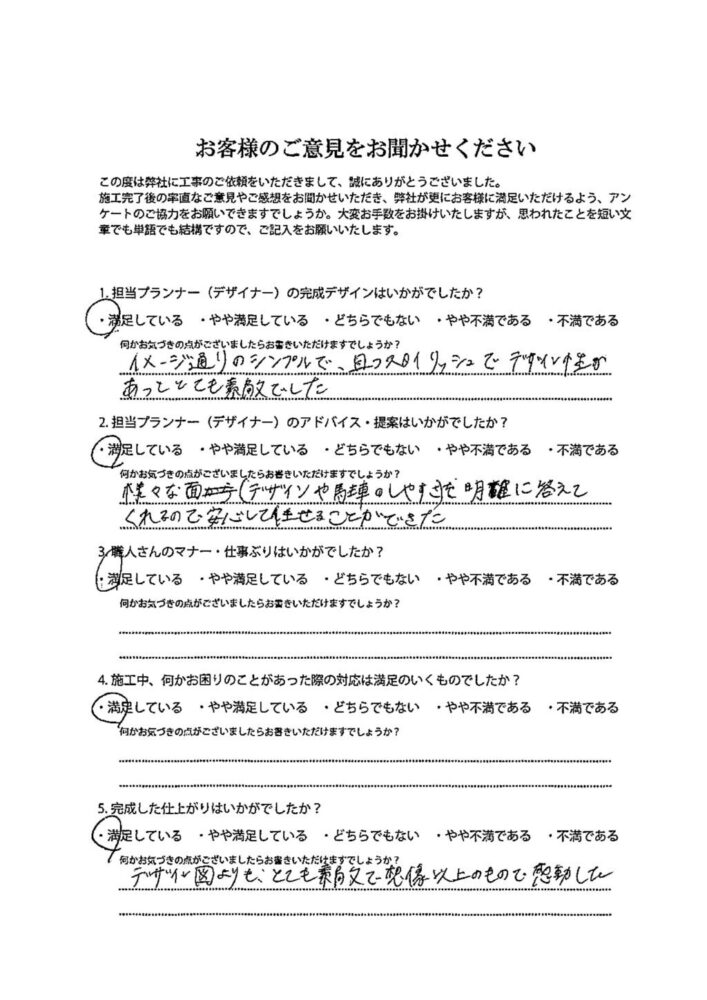 お客様のご意見をお聞かせください
この度は弊社に工事のご依頼をいただきまして、誠にありがとうございました。
施工完了後の率直なご意見やご感想をお聞かせいただき、弊社が更にお客様に満足いただけるよう、アン
ケートのご協力をお願いできますでしょうか。大変お手数をお掛けいたしますが、思われたことを短い文
章でも単語でも結構ですので、ご記入をお願いいたします。
1. 担当プランナー（デザイナー）の完成デザインはいかがでしたか？
・満足している ・やや満足している ・どちらでもない ・やや不満である ・不満である
何かお気づきの点がございましたらお書きいただけますでしょうか？
イメージ通りのシンプルで、且つスタイリッシュでデザイン性が
あってとても素敵でした
2. 担当プランナー（デザイナー）のアドバイス・提案はいかがでしたか？
・満足している ・やや満足している ・どちらでもない ・やや不満である ・不満である
何かお気づきの点がございましたらお書きいただけますでしょうか？
様々な面(デザインや駐車のしやすさ)で明確に答えて
くれるので安心して任せることができた
3. 職人さんのマナー・仕事ぶりはいかがでしたか？
・満足している ・やや満足している ・どちらでもない ・やや不満である ・不満である
何かお気づきの点がございましたらお書きいただけますでしょうか？
4. 施工中、何かお困りのことがあった際の対応は満足のいくものでしたか？
・満足している ・やや満足している ・どちらでもない ・やや不満である ・不満である
何かお気づきの点がございましたらお書きいただけますでしょうか？
5. 完成した仕上がりはいかがでしたか？
・満足している ・やや満足している ・どちらでもない ・やや不満である ・不満である
何かお気づきの点がございましたらお書きいただけますでしょうか？
デザイン図よりも、とても素敵で想像以上のもので感動した